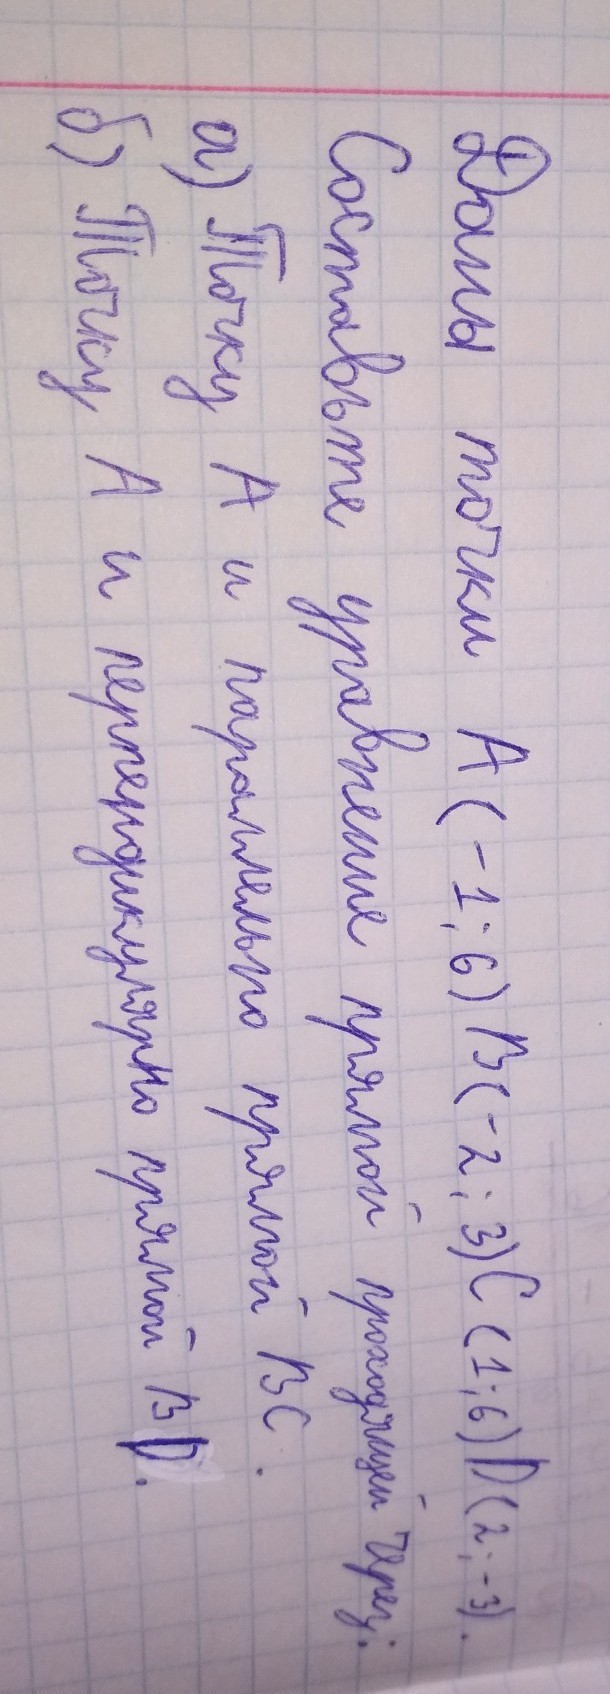 Даны точки A(-1;6) B(-2;3) C(1;6) D(2;-3).
Составьте уравнение прямой проходящей через:
а) Точку A и параллельно прямой BC.
б) Точку A и перпендикулярно прямой BD.